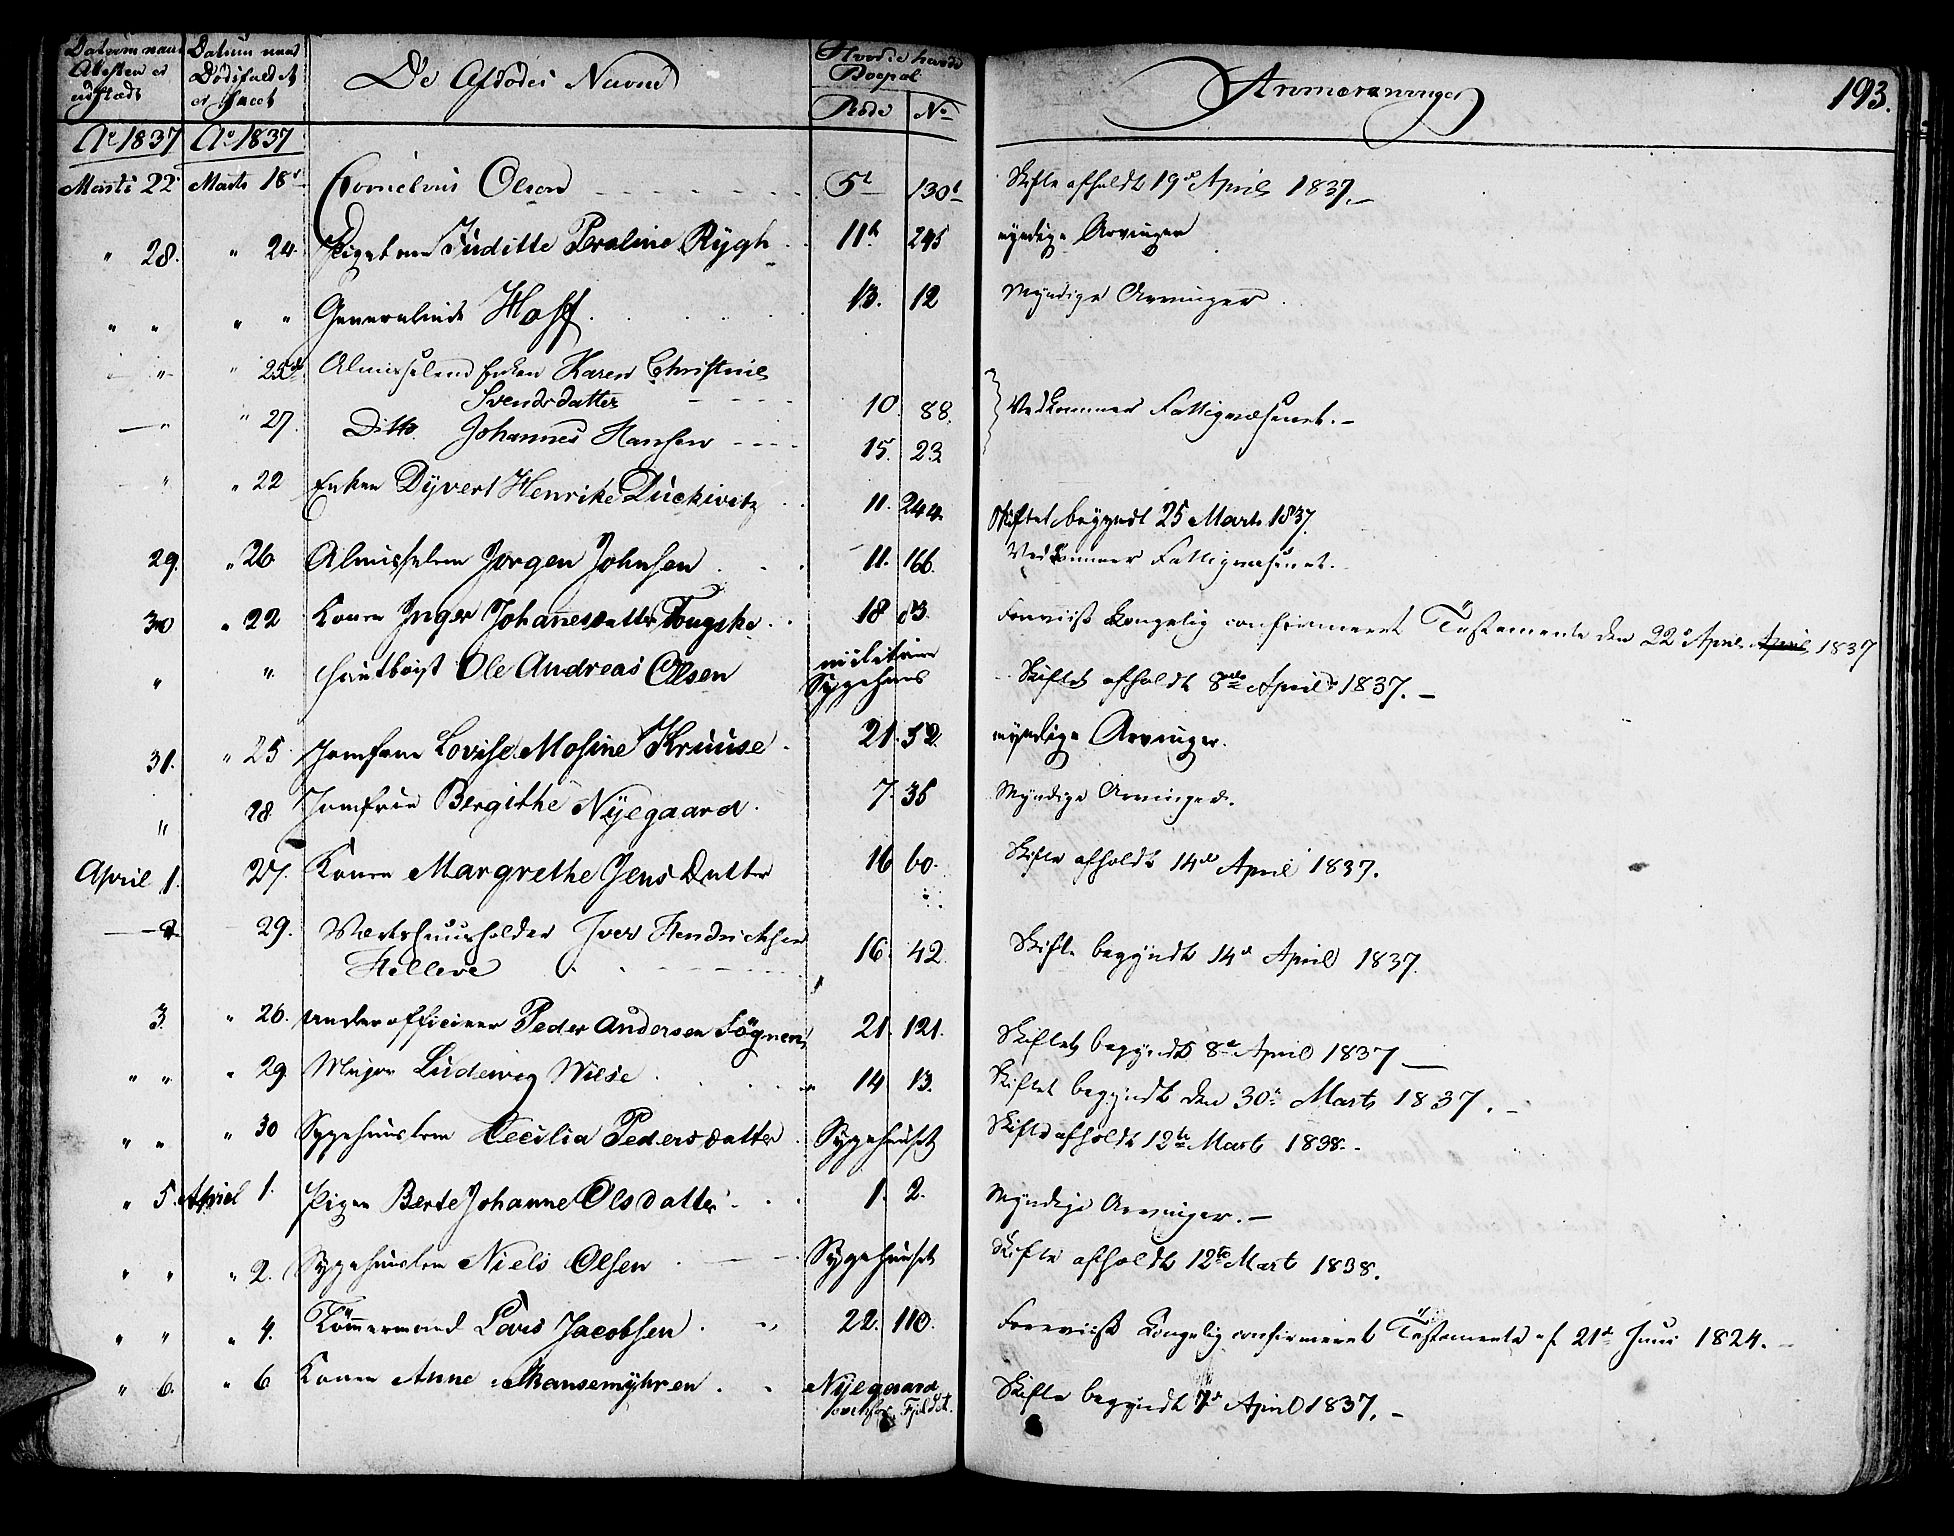 Datum naar Attesten er udstædt | Datum naar Dødsfaldet er skeet | De Afdødes Navne | Hvor de havde Boepæl Rode | No | Anmærkninger | 193.
Ao 1837 | Ao 1837
Marts 22 | Marts 18 | Cornelius Olsen | 5 | 130 | Skifte afholdt 19 April 1837.
" 28. | " 24. | Pigebarn Juditte Peroline Rygh | 11 | 245 | myndige Arvinger
" " | " " | Generalinde Hoff. | 13. | 12 | Myndige Arvinger.
" | " 25 | Almisselem Enken Karen Christine
Svendsdatter | 10. | 88. | Vedkommer Fattigvæsenet.
" | " 27. | Ditto Johannes Hansen | 15. | 23
" | " 22 | Enken Dyvert Henrike | 11. | 244. | Skiftet begyndt 25 Marts 1837.
29. | " 26 | Almisselem Jørgen Johnsen | 11. | 166. | Vedkommer Fattigvæsenet.
30 | " 22 | Konen Inger Johannesdatter | 18 | 83. | Foreviist Kongelig confirmeret Testamente den 22 April April 1837
" | " | Hautboist Ole Andreas Olsen | militaire Sygehuus | Skiftet afholdt 8de April 1837.
31. | " 25 | Jomfrue Lovise Mosine Kruuse | 21. | 52. | myndige Arvinger.
" | 28 | Jomfrue Bergithe Nyegaard. | 7. | 36 | Myndige Arvinger.
April 1. | 27. | Konen Margrethe Jens Datter | 16 | 60. | Skifte afholdt 14de April 1837.
29. | Vertshuusholder Iver Hendrichsen
Helleve | 16. | 42. | Skifte begyndt 14 April 1837.
3. | " 26. | underofficieer Peder Andersen | 21. | 121. | Skiftet begyndt 8de April 1837
" " | " 29. | Major Ludewig Wiese | 14. | 13. | Skiftet begyndt den 30 Marts 1837.
" " | " 30 | Sygehuuslem Cecilia Pedersdatter | Sygehuset | Skifte afholdt 12te Mart 1838.
" 5. | April 1. | Pigen Berte Johanne Olsdatter | 1. | 2. | Myndige Arvinger.
" " | " 2. | Sygehuuslem Niels Olsen | Sygehuset | Skifte afholdt 12te Mart 1838.
" " | " 4. | Tømmermand Lars Jacobsen | 22. | 110. | Foreviist Kongelig confirmeret Testamente af 21de Juni 1824.
" 6. | " 6 | Konen Anne | Nyegaard ovenfor Fjeldet. | Skifte begyndt 7de April 1837.